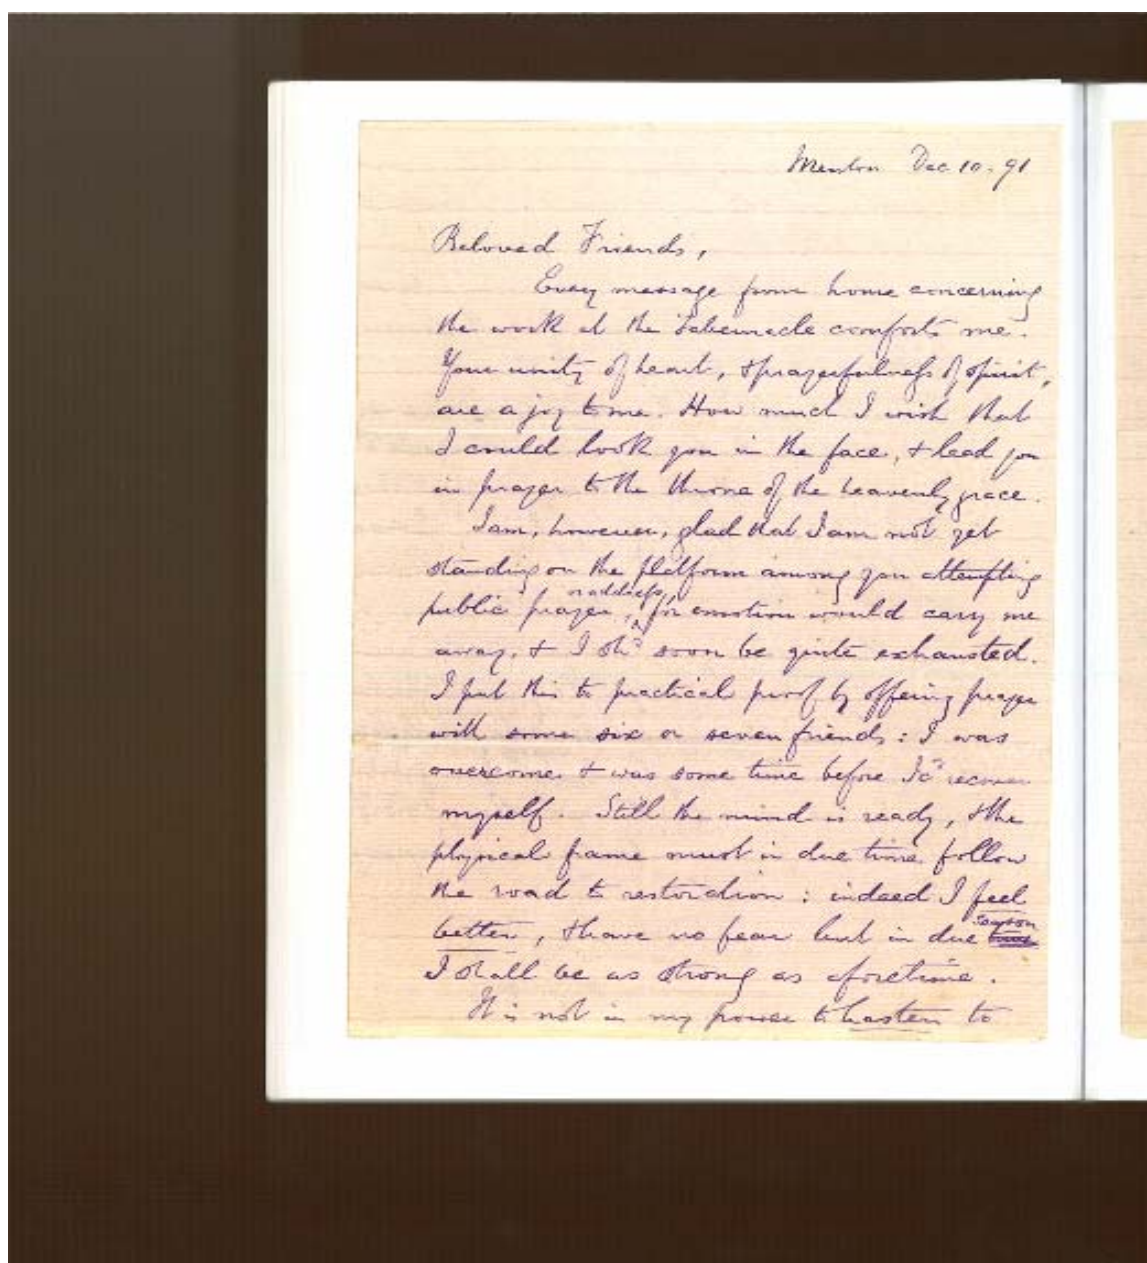 Menton Dec 10. 91
Beloved Friends,
Every message from home concerning
the work at the Tabernacle comforts me.
Your unity of heart, & prayerfulness of spirit,
are a joy to me. How much I wish that
I could look you in the face, & lead you
in prayer to the throne of the heavenly grace.
I am, however, glad that I am not yet
standing on the platform among you attempting
public prayer or address, for emotion would carry me
away, & I shd soon be quite exhausted.
I put this to practical proof by offering prayer
with some six or seven friends: I was
overcome & was some time before I cd recover
myself. Still the mind is ready, & the
physical frame must in due time follow
the road to restoration: indeed I feel
better, & have no fear but in due season
I shall be as strong as aforetime.
It is not in my power to hasten to